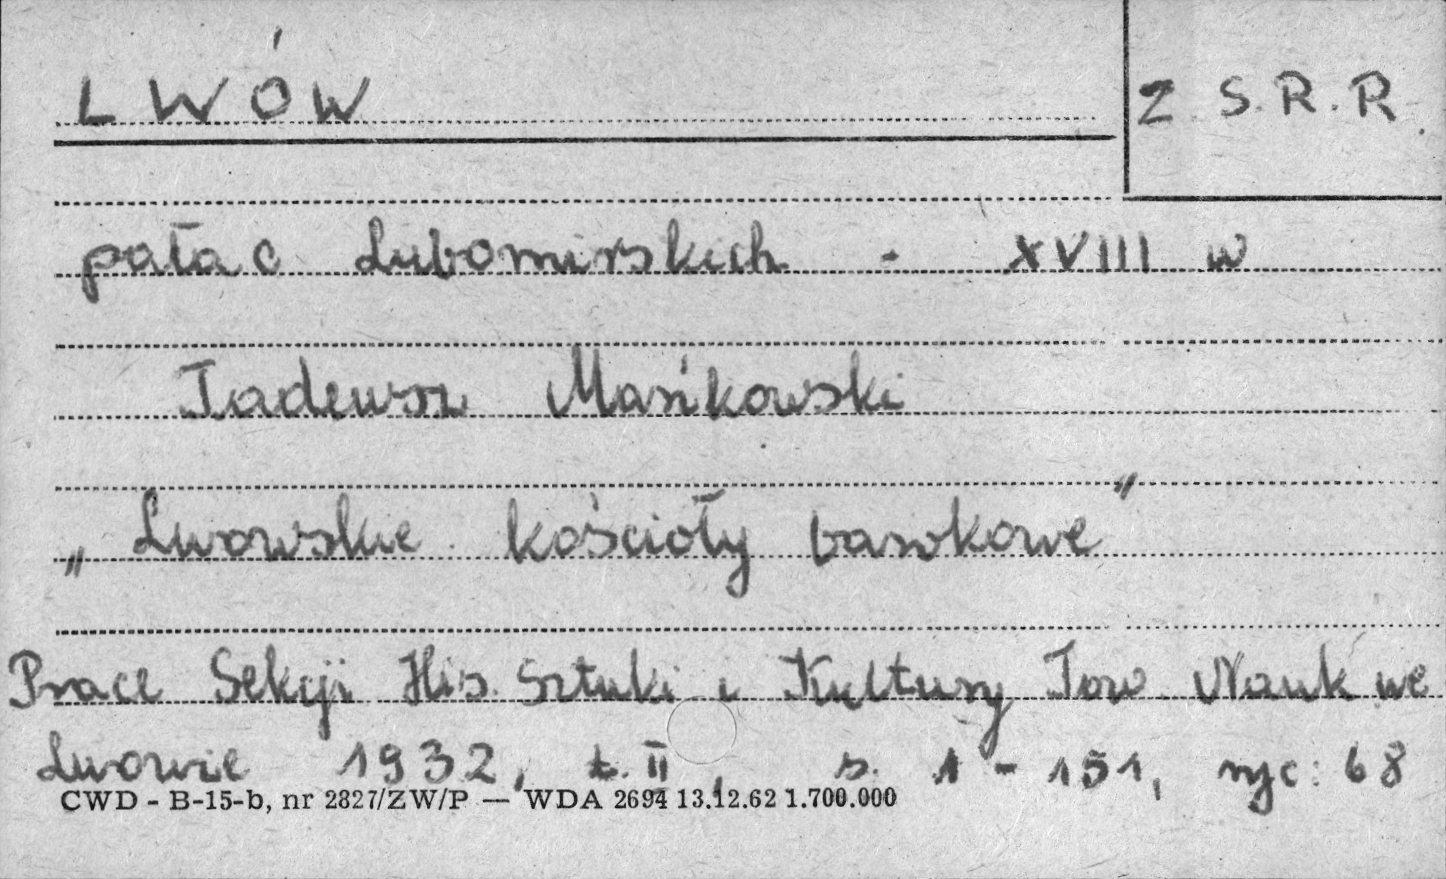 LWÓW
Z S.R.R.
pałac Lubomirskich - XVIII w
Tadeusz Mańkowski
„Lwowskie kościoły barokowe"
Prace Sekcji His. Sztuki i Kultury Tow. Nauk we
Lwowie 1932, t. II, s. 1 - 151, ryc: 68
CWD - B-15-b, nr 2827/ZW/P — WDA 2694 13.12.62 1.700.000